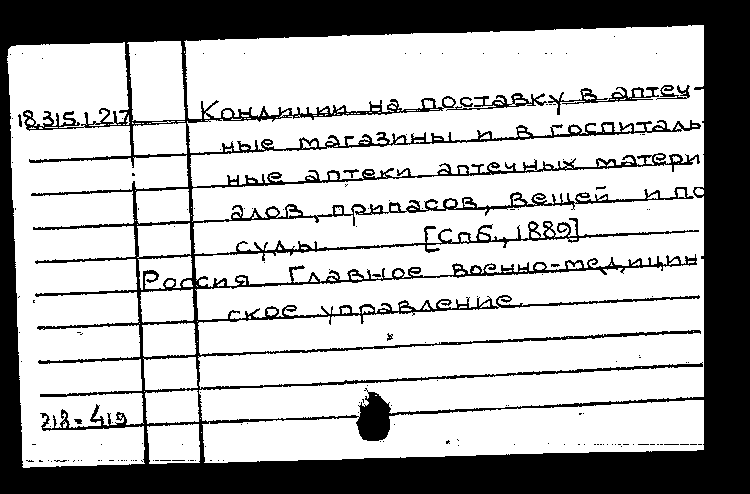 18.315.1.217 Кондиции на поставку в аптеч-
ные магазины и в госпиталь
ные аптеки аптечных матери
алов, припасов, вещей и по
суды [Спб., 1889]
Россия Главное военно-медицин-
ское управление.
218=419